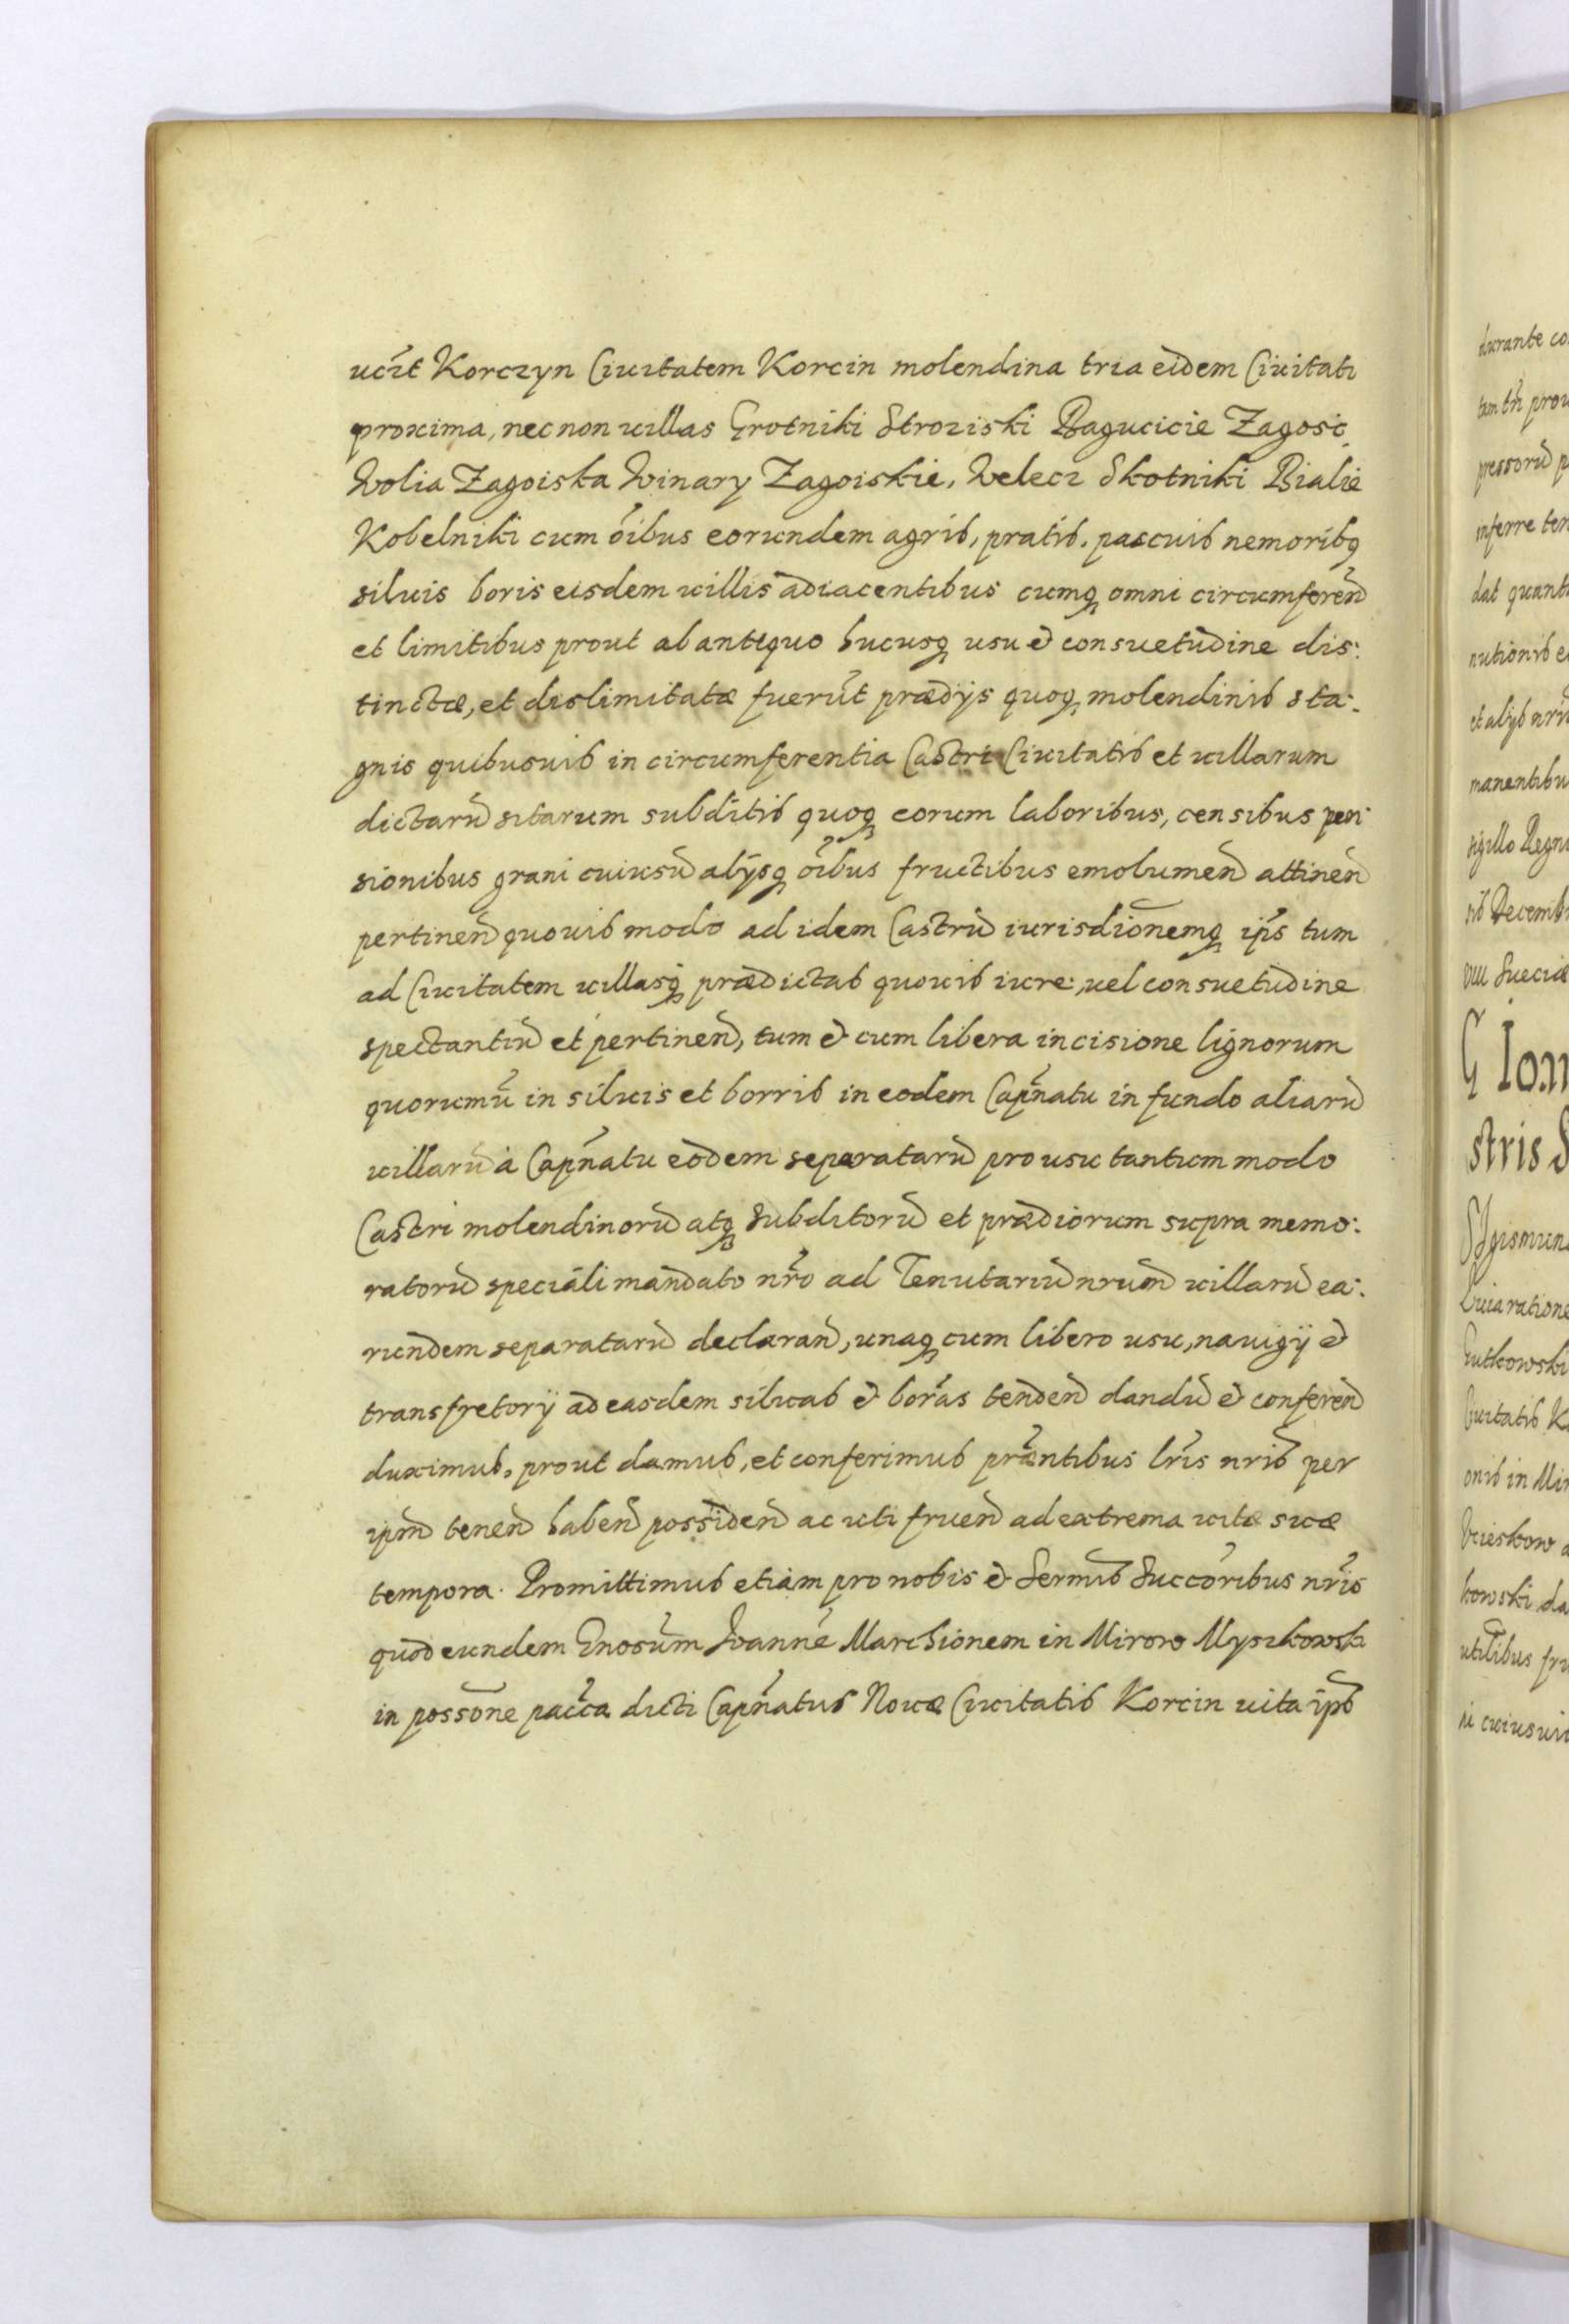 uczt Korczyn Ciuitatem Korcin molendina tria eidem Ciuitati
proxima, nec non uillas Grotniki Stroziski Bagucicie Zagosc
Wolia Zagoiska Winary Zagoiskie, Welecz Skotniki Bialie
Kobelniki cum õibus eorundem agris, pratis, pascuis nemoribq
siluis boris eisdem uillis adiacentibus cumq omni circumferen̄
et limitibus prout ab antiquo hucusq usu & consuetudine dis:
tinctæ, et dislimitatæ fuerũt prædijs quoq molendinis sta:
gnis quibusuis in circumferentia Castri Ciuitatis et uillarum
dictarū sitarum subditis quoq eorum laboribus, censibus pen:
sionibus grani cuiusū alijsq õibus fructibus emolumen̄ attinen̄
pertinen̄ quouis modo ad idem Castrū iurisdiōnemq ip̃s tum
ad Ciuitatem uillasq prædictas quouis iure, uel consuetudine
spectantiū et pertinen̄, tum & cum libera incisione lignorum
quorumũ in siluis et borris in eodem Cap̃natu in fundo aliarū
uillarū à Cap̃natu eodem separatarū pro usu tantummodo
Castri molendinorū atq Subditorū et prædiorum supra memo:
ratorū speciali mandato nr̃o ad Tenutariū nrum̄ uillarū ea:
rundem separatarū declaran̄, unaq cum libero usu, nauigij &
transfretorij ad easdem siluas & bor̃as tenden̄ dandū & conferen̄
duximus, prout damus, et conferimus præ̃ntibus lr̃is nris̄ per
ipm̄ tenen̄ haben̄ possiden̄ ac uti fruen̄ ad extrema uitæ suæ
tempora. Promittimus etiam pro nobis & Sermis̄ Succõribus nr̃is
quod eundem Gnosũm Joannẽ Marchionem in Mirow Myszkowsk
in possōne pac̃ca dicti Cap̃natus Nouæ Ciuitatis Korcin uita ips̄